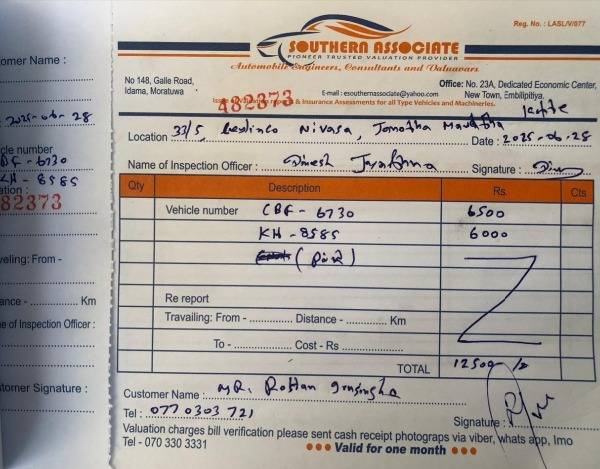 Reg. No. : LASL/V/077
SOUTHERN ASSOCIATE
PIONEER TRUSTED VALUATION PROVIDER
Automobile Engineers, Consultants and Valuavars
No 148, Galle Road,
Idama, Moratuwa
Office: No. 23A, Dedicated Economic Center,
New Town, Embilipitiya.
E-mail : esouthernassociate@yahoo.com
& Insurance Assessments for all Type Vehicles and Machineries.
482373
Location 33/5, Nivasa, Date : 2025-06-28
Name of Inspection Officer : Dinesh Signature :
Qty Description Rs. Cts
Vehicle number CBF - 6730 6500
KH - 8585 6000
Re report
Travailing: From - Distance - Km
To - Cost - Rs
TOTAL 12500
Customer Name : MR. Rohan
Tel : 077 0303 721
Signature :
Valuation charges bill verification please sent cash receipt photograps via viber, whats app, Imo
Tel - 070 330 3331
Valid for one month
omer Name :
2025-06-28
hicle number
BF - 6730
KH - 8585
ation :
82373
veling: From -
ance - Km
e of Inspection Officer :
tomer Signature :